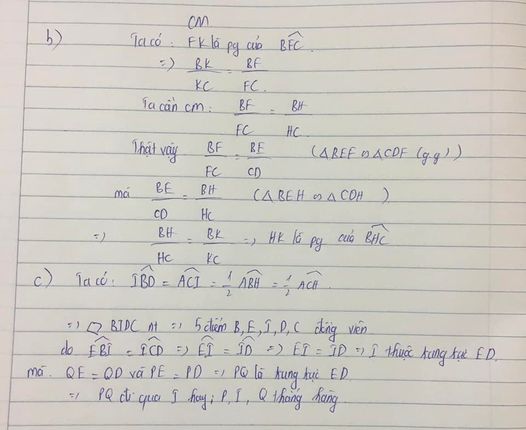 CM
b) Ta có : FK là pg của BFC.
=> BK/KC = BF/FC.
Ta cần cm: BF/FC = BH/HC.
Thật vậy BF/FC = BE/CD (△BEF ∽ △CDF (g.g))
mà BE/CD = BH/HC (△BEH ∽ △CDH)
=> BH/HC = BK/KC => HK là pg của BHC
c) Ta có: IBD = ACI = 1/2 ABH = 1/2 ACH.
=> BIDC nt => 5 điểm B, E, I, D, C đồng viên
do EBI = ICD => EI = ID => EI = ID => I thuộc trung trực ED.
mà. QE = QD và PE = PD => PQ là trung trực ED.
=> PQ đi qua I hay; P, I, Q thẳng hàng